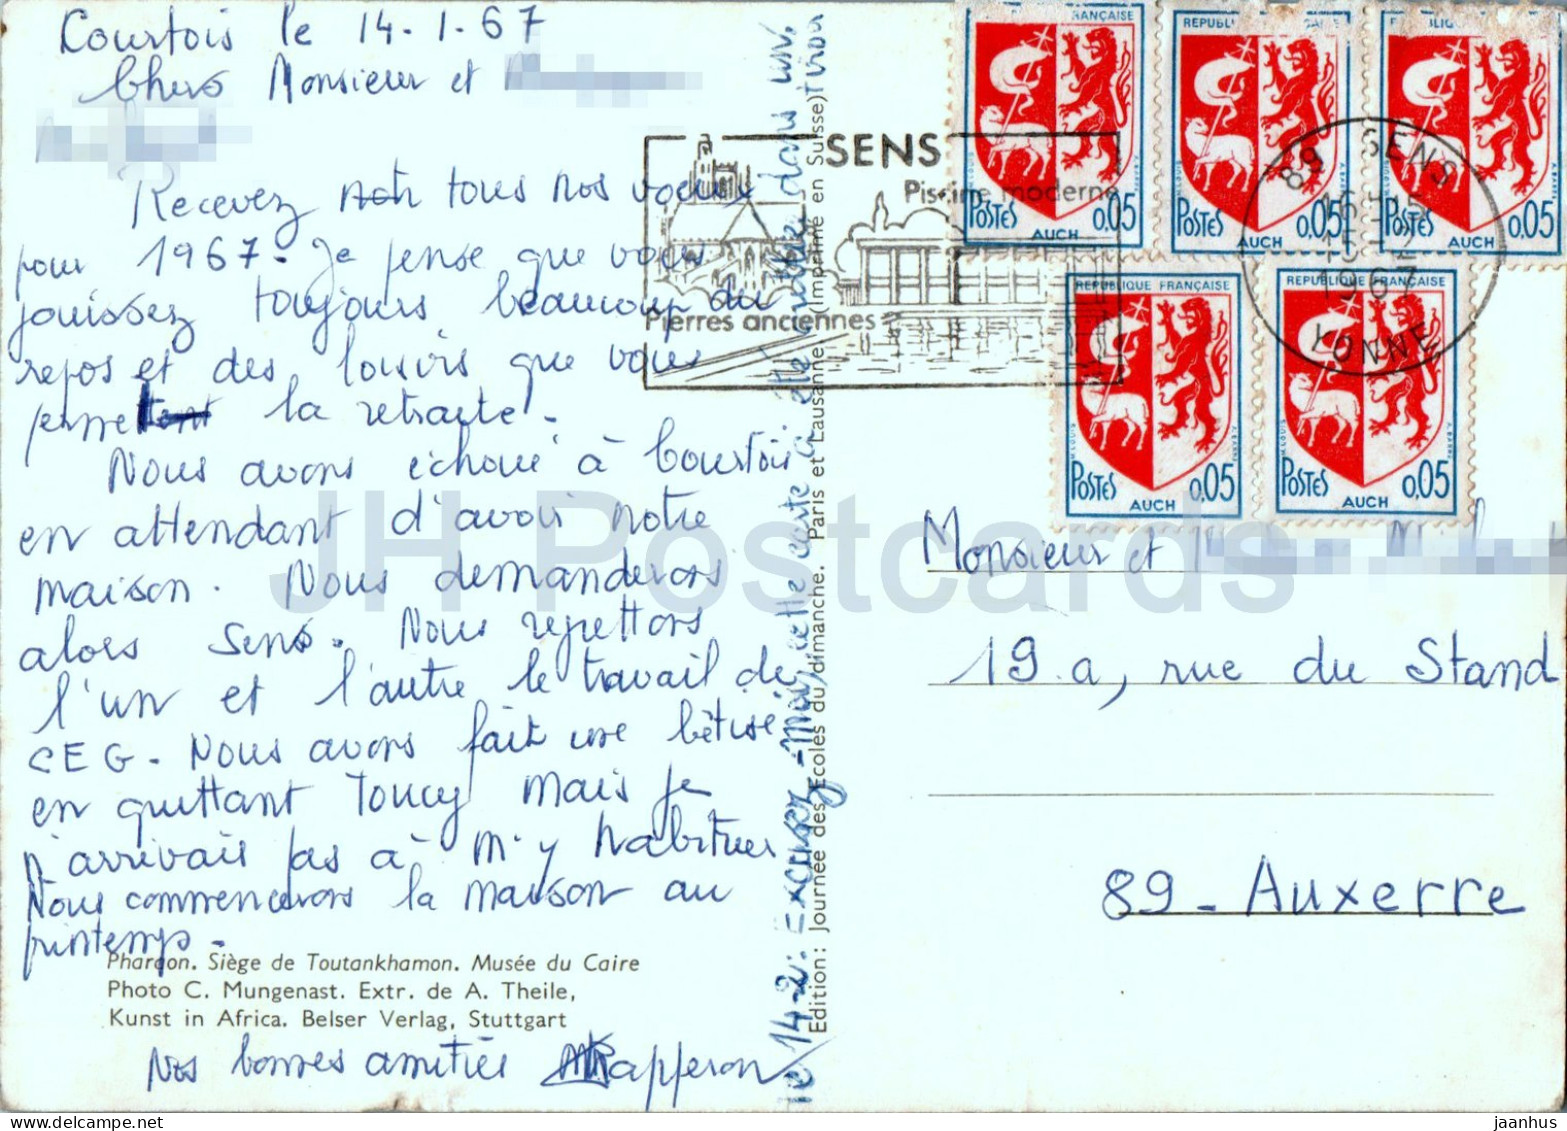 Courtois le 14-1-67
Chers Monsieur et
Recevez tous nos vœux
pour 1967. Je pense que vous
jouissez toujours beaucoup du
repos et des loisirs que vous
permet la retraite.
Nous avons échoué à Courtois
en attendant d'avoir notre
maison. Nous demanderons
alors Sens. Nous regrettons
l'un et l'autre le travail de
CEG. Nous avons fait une bêtise
en quittant Toucy mais je
n'arrivais pas à m'y habituer
Nous commencerons la maison au
printemps.
Pharaon. Siège de Toutankhamon. Musée du Caire
Photo C. Mungenast. Extr. de A. Theile,
Kunst in Africa. Belser Verlag, Stuttgart
Nos bonnes amitiés
le 14-2: Excusez-moi, cette carte a été oubliée dans un tiroir
Edition: Journée des Ecoles du dimanche. Paris et Lausanne (Imprimé en Suisse)
SENS
Piscine moderne
Pierres anciennes
89 SENS
16H15
15-2
1967
YONNE
RÉPUBLIQUE FRANÇAISE
POSTES 0,05
AUCH
POSTES 0,05
AUCH
POSTES 0,05
AUCH
REPUBLIQUE FRANÇAISE
POSTES 0,05
AUCH
REPUBLIQUE FRANÇAISE
POSTES 0,05
AUCH
Monsieur et
19.a, rue du Stand
89 - Auxerre
JH Postcards
jaanhus